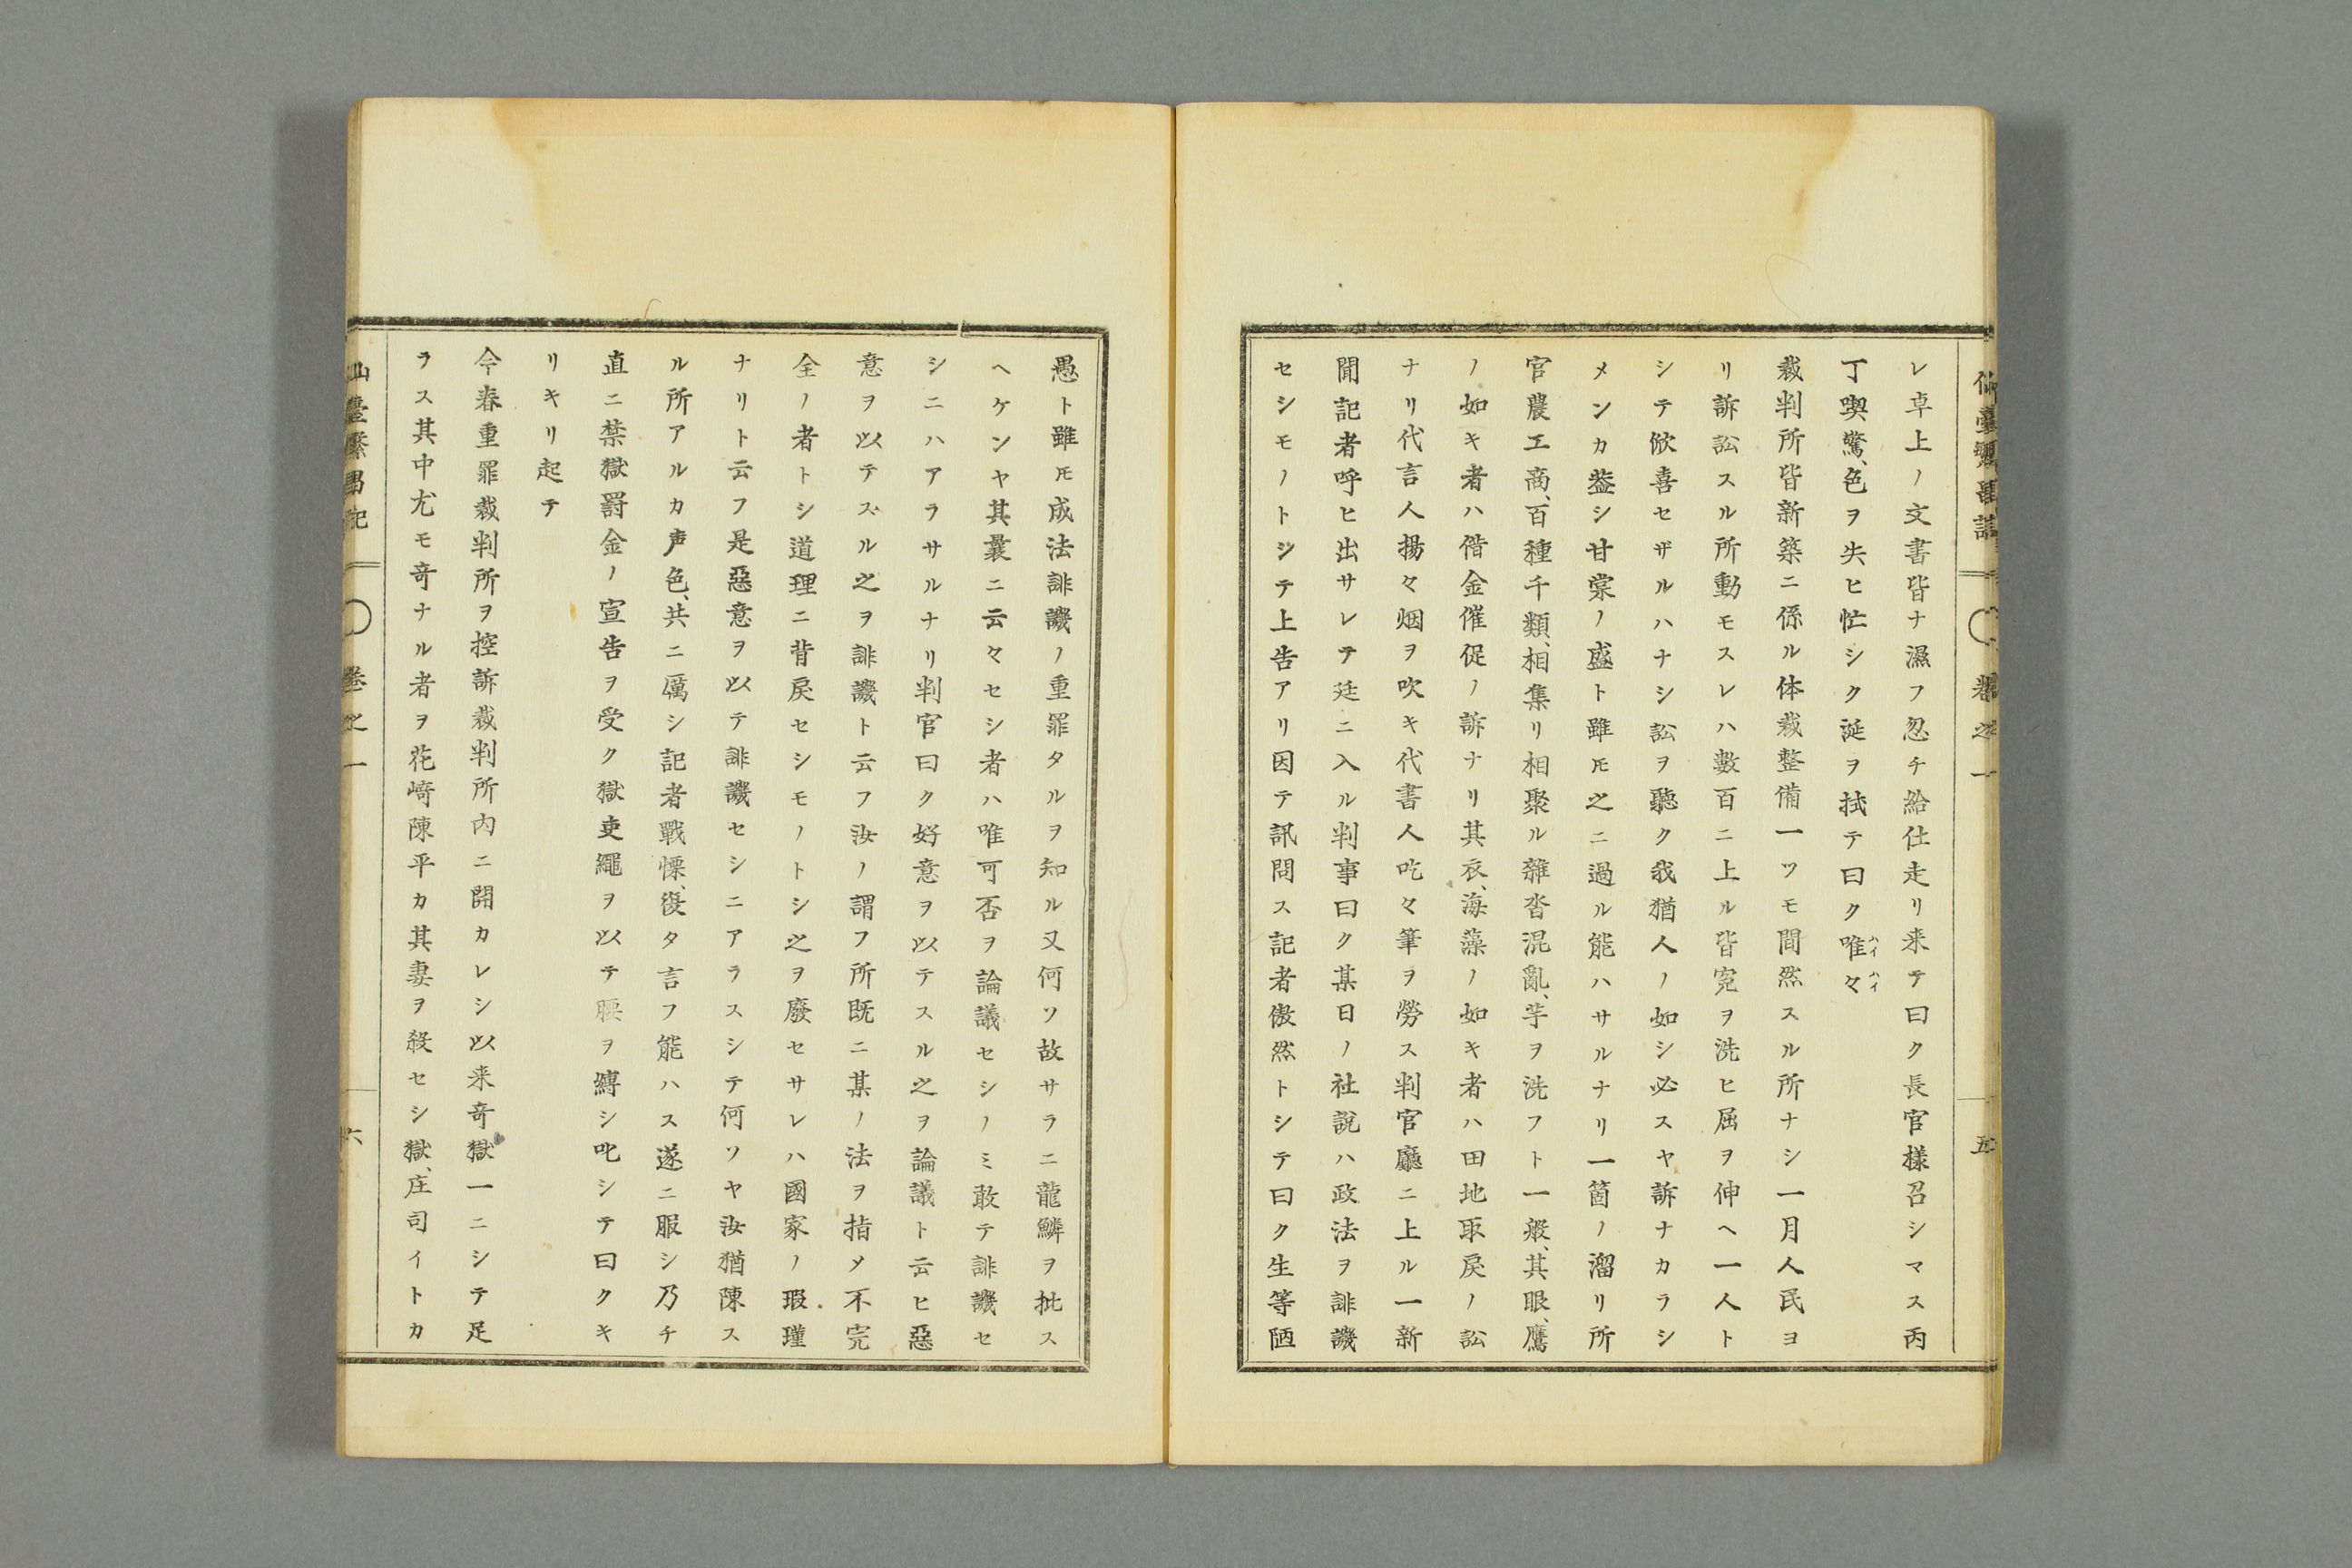 仙臺繁昌記 卷之一 五
レ卓上ノ文書皆ナ濕フ忽チ給仕走リ来テ曰ク長官様召シマス丙
丁喫驚、色ヲ失ヒ忙シク涎ヲ拭テ曰ク唯々ハイハイ
裁判所皆新築ニ係ル体裁整備一ツモ間然スル所ナシ一月人民ヨ
リ訴訟スル所動モスレハ數百ニ上ル皆寃ヲ洗ヒ屈ヲ伸ヘ一人ト
シテ歓喜セザルハナシ訟ヲ聽ク我猶人ノ如シ必スヤ訴ナカラシ
メンカ葢シ甘棠ノ盛ト雖𪜈之ニ過ル能ハサルナリ一箇ノ溜リ所
官農工商、百種千類、相集リ相聚ル雜沓混亂、芋ヲ洗フト一般、其眼、鷹
ノ如キ者ハ偕金催促ノ訴ナリ其衣、海藻ノ如キ者ハ田地取戻ノ訟
ナリ代言人揚々烟ヲ吹キ代書人吃々筆ヲ勞ス判官廳ニ上ル一新
聞記者呼ヒ出サレテ廷ニ入ル判事曰ク某日ノ社説ハ政法ヲ誹譏
セシモノトシテ上告アリ因テ訊問ス記者傲然トシテ曰ク生等陋
愚ト雖𪜈成法誹譏ノ重罪タルヲ知ル又何ソ故サラニ龍鱗ヲ批ス
ヘケンヤ其曩ニ云々セシ者ハ唯可否ヲ論議セシノミ敢テ誹譏セ
シニハアラサルナリ判官曰ク好意ヲ以テスル之ヲ論議ト云ヒ惡
意ヲ以テスル之ヲ誹譏ト云フ汝ノ謂フ所既ニ某ノ法ヲ指メ不完
全ノ者トシ道理ニ背戻セシモノトシ之ヲ廢セサレハ國家ノ瑕瑾
ナリト云フ是惡意ヲ以テ誹譏セシニアラスシテ何ソヤ汝猶陳ス
ル所アルカ声色、共ニ厲シ記者戰慄、復タ言フ能ハス遂ニ服シ乃チ
直ニ禁獄罸金ノ宣告ヲ受ク獄吏繩ヲ以テ腰ヲ縛シ叱シテ曰クキ
リキリ起テ
今春重罪裁判所ヲ控訴裁判所内ニ開カレシ以来奇獄一ニシテ足
ラス其中尤モ奇ナル者ヲ花崎陳平カ其妻ヲ殺セシ獄、庄司イトカ
仙臺繁昌記 卷之一 六